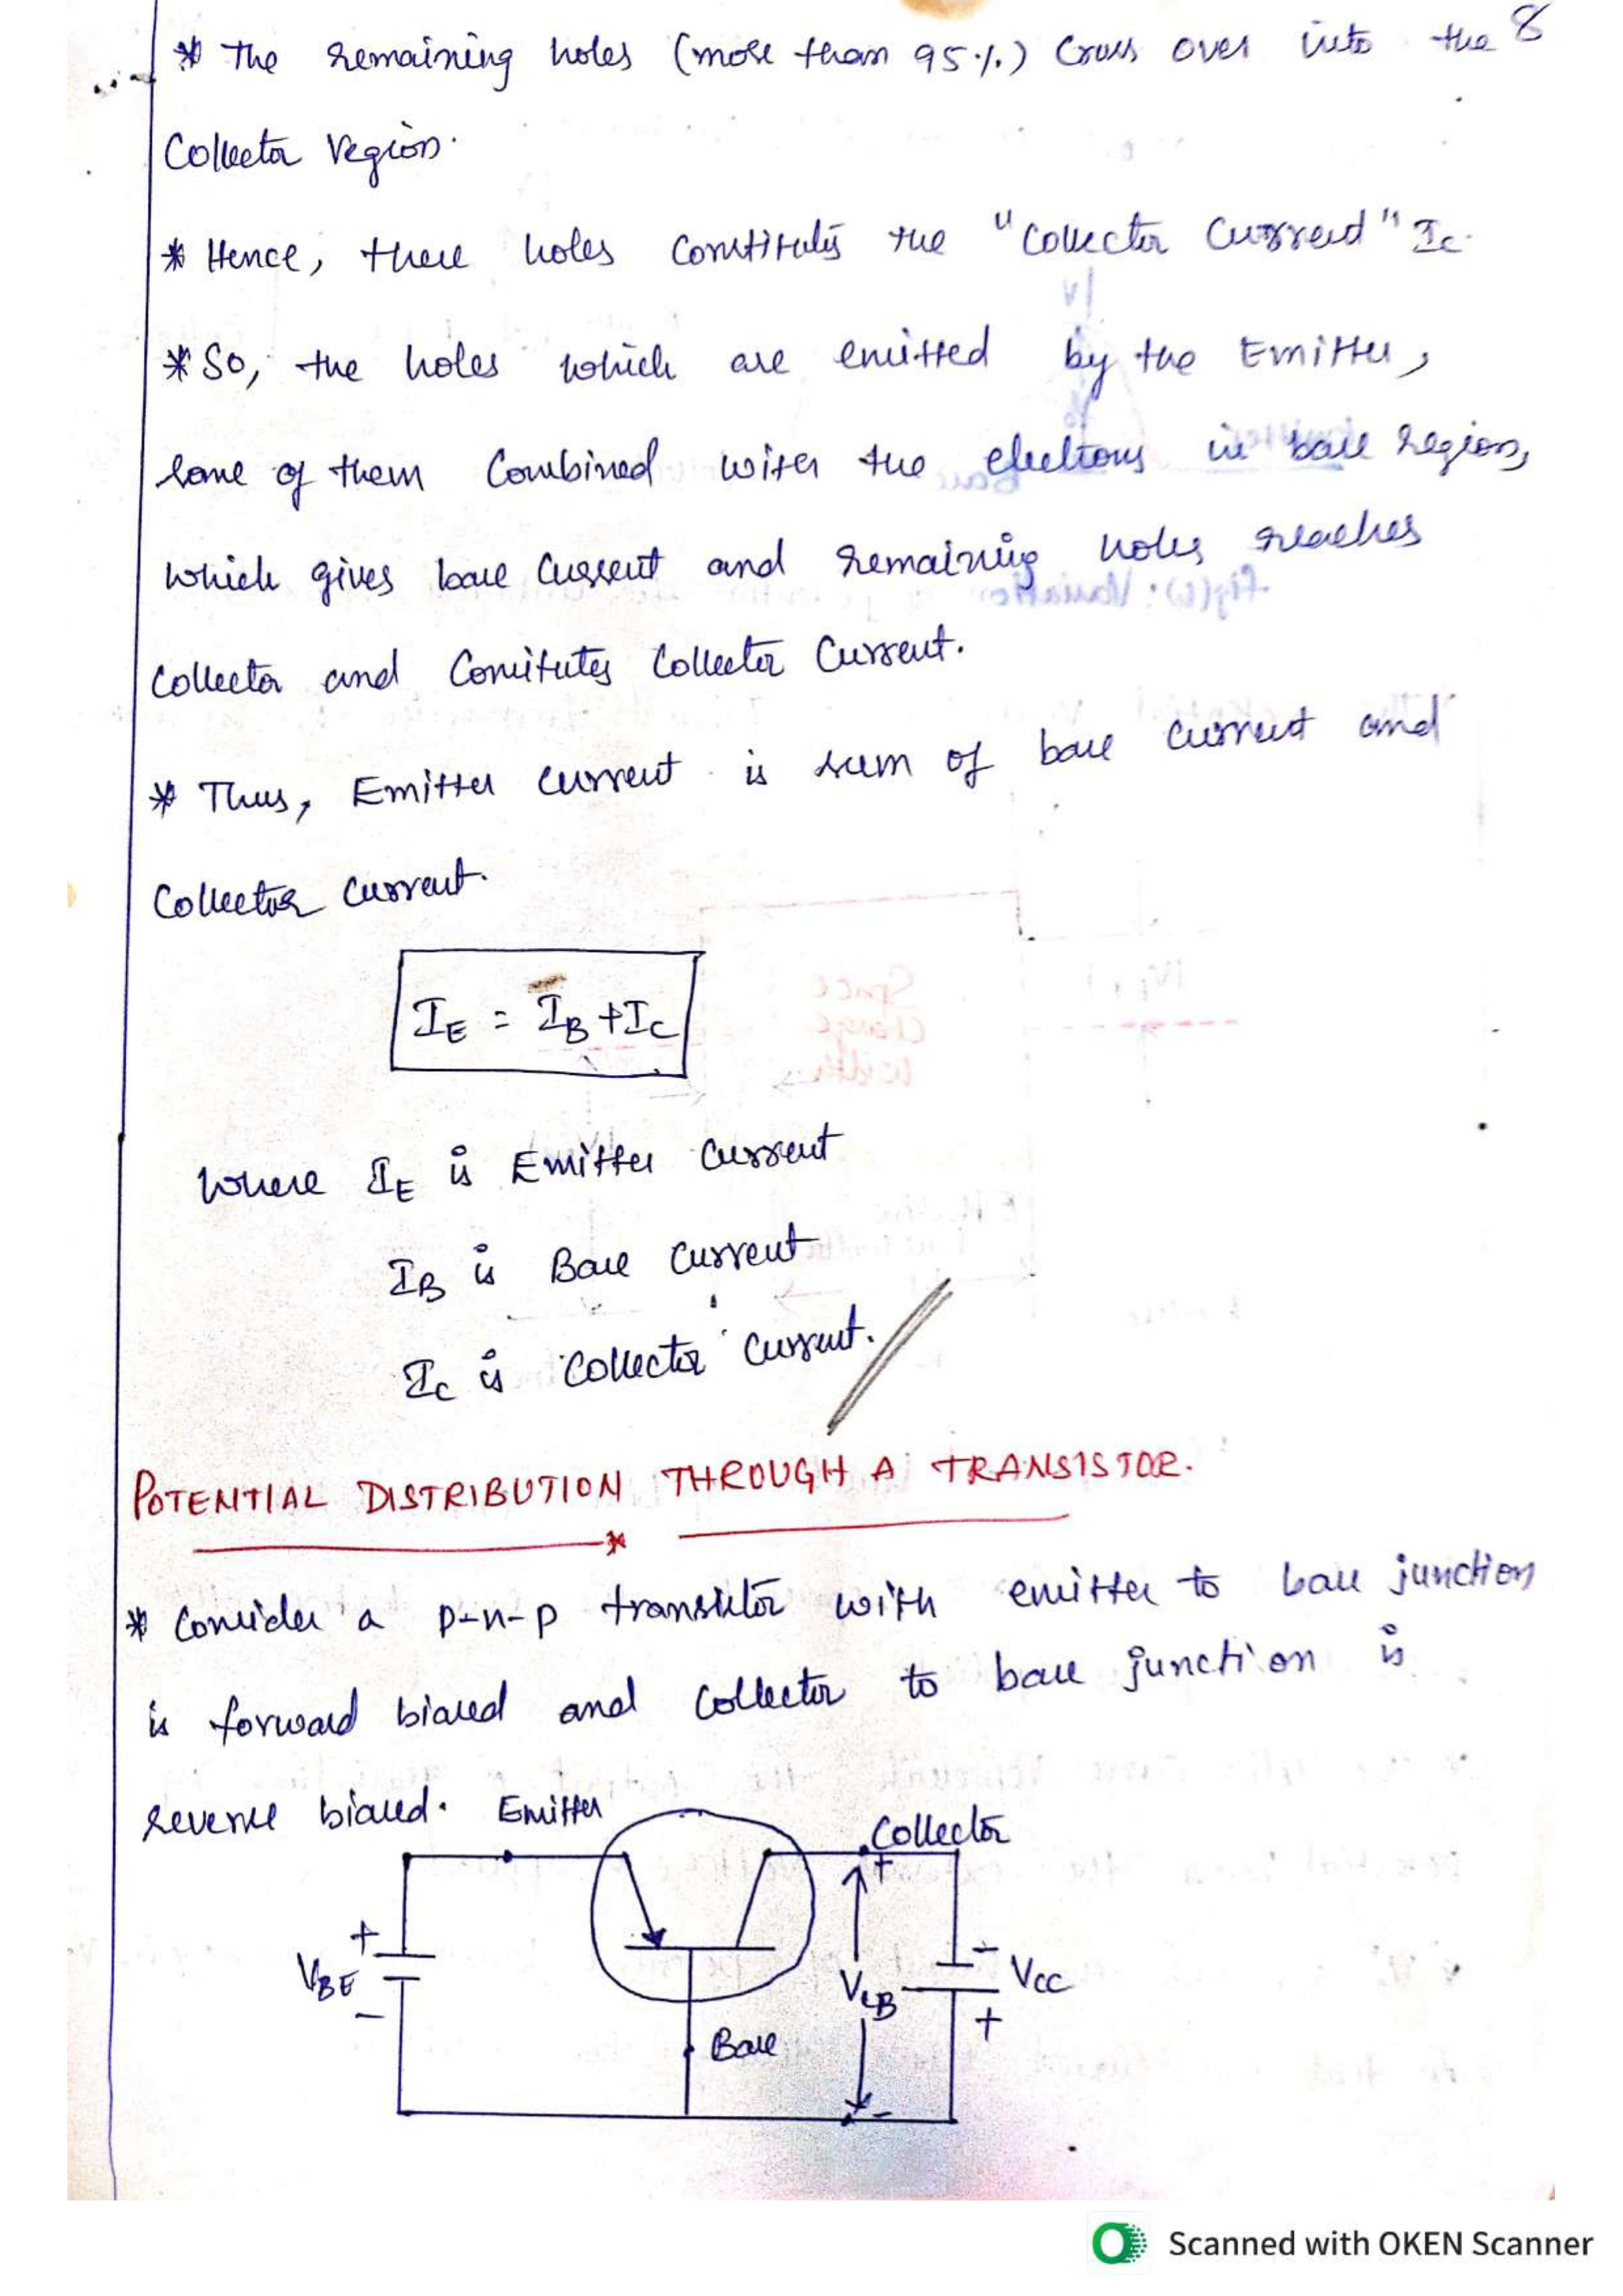 * The remaining holes (more than 95%) Cross over into the 8
Collector region.
* Hence, these holes constitutes the "Collector Current" Ic.
* So, the holes which are emitted by the Emitter,
some of them Combined with the electrons in base region,
which gives base Current and remaining holes reaches
Collector and Constitutes Collector Current.
* Thus, Emitter current is sum of base current and
Collector current.
IE = IB + IC
Where IE is Emitter Current
IB is Base Current
IC is Collector Current.
POTENTIAL DISTRIBUTION THROUGH A TRANSISTOR.
* Consider a p-n-p transistor with emitter to base junction
is forward biased and Collector to base junction is
reverse biased.
Emitter
Collector
+
+
-
VBE
VCB
VCC
-
+
Base
-
Scanned with OKEN Scanner